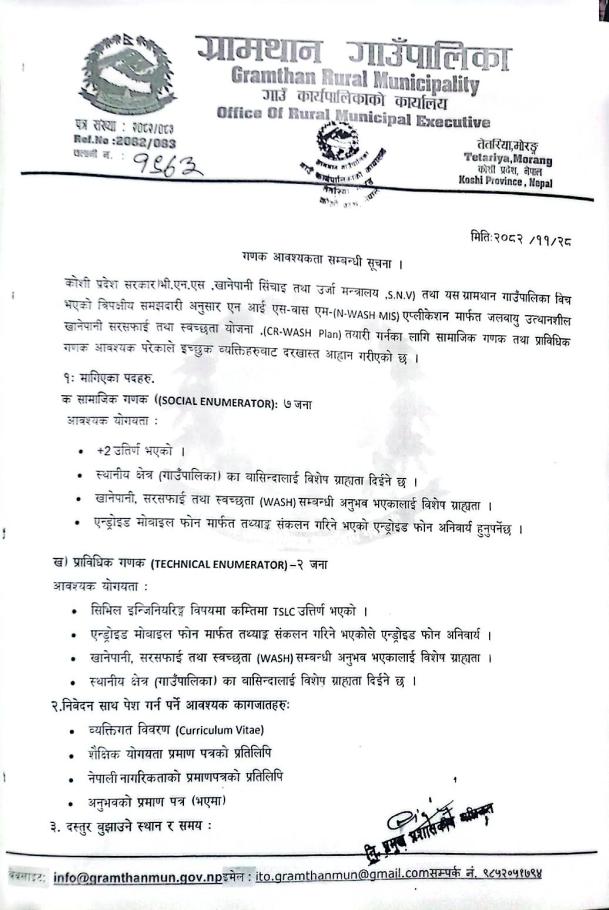 ग्रामथान गाउँपालिका
Gramthan Rural Municipality
गाउँ कार्यपालिकाको कार्यालय
Office Of Rural Municipal Executive
पत्र संख्या : २०८२/०८३
Ref.No :2082/083
चलानी नं. : 9563
तेतरिया,मोरङ
Tetariya,Morang
कोशी प्रदेश, नेपाल
Koshi Province , Nepal
मिति:२०८२ /११/२८
गणक आवश्यकता सम्बन्धी सूचना ।
कोशी प्रदेश सरकार)भी.एन.एस ,खानेपानी सिंचाइ तथा उर्जा मन्त्रालय ,S.N.V) तथा यस ग्रामथान गाउँपालिका बिच
भएको त्रिपक्षीय समझदारी अनुसार एन आई एस-वास एम-(N-WASH MIS) एप्लीकेशन मार्फत जलवायु उत्थानशील
खानेपानी सरसफाई तथा स्वच्छता योजना ,(CR-WASH Plan) तयारी गर्नका लागि सामाजिक गणक तथा प्राविधिक
गणक आवश्यक परेकाले इच्छुक व्यक्तिहरुवाट दरखास्त आह्वान गरीएको छ ।
१: मागिएका पदहरु.
क सामाजिक गणक ((SOCIAL ENUMERATOR): ७ जना
आवश्यक योग्यता :
• +2 उतिर्ण भएको ।
• स्थानीय क्षेत्र (गाउँपालिका) का वासिन्दालाई विशेष ग्राह्यता दिईने छ ।
• खानेपानी, सरसफाई तथा स्वच्छता (WASH) सम्बन्धी अनुभव भएकालाई विशेष ग्राह्यता ।
• एन्ड्रोइड मोबाइल फोन मार्फत तथ्याङ्क संकलन गरिने भएको एन्ड्रोइड फोन अनिवार्य हुनुपर्नेछ ।
ख) प्राविधिक गणक (TECHNICAL ENUMERATOR) –२ जना
आवश्यक योग्यता :
• सिभिल इन्जिनियरिङ्ग विषयमा कम्तिमा TSLC उत्तिर्ण भएको ।
• एन्ड्रोइड मोबाइल फोन मार्फत तथ्याङ्क संकलन गरिने भएकोले एन्ड्रोइड फोन अनिवार्य ।
• खानेपानी, सरसफाई तथा स्वच्छता (WASH) सम्बन्धी अनुभव भएकालाई विशेष ग्राह्यता ।
• स्थानीय क्षेत्र (गाउँपालिका) का वासिन्दालाई विशेष ग्राह्यता दिईने छ ।
२.निवेदन साथ पेश गर्न पर्ने आवश्यक कागजातहरु:
• व्यक्तिगत विवरण (Curriculum Vitae)
• शैक्षिक योग्यता प्रमाण पत्रको प्रतिलिपि
• नेपाली नागरिकताको प्रमाणपत्रको प्रतिलिपि
• अनुभवको प्रमाण पत्र (भएमा)
३. दस्तुर बुझाउने स्थान र समय :
नि. प्रमुख प्रशासकीय अधिकृत
info@gramthanmun.gov.npइमेल : ito.gramthanmun@gmail.comसम्पर्क नं. ९८५२०५१७९४